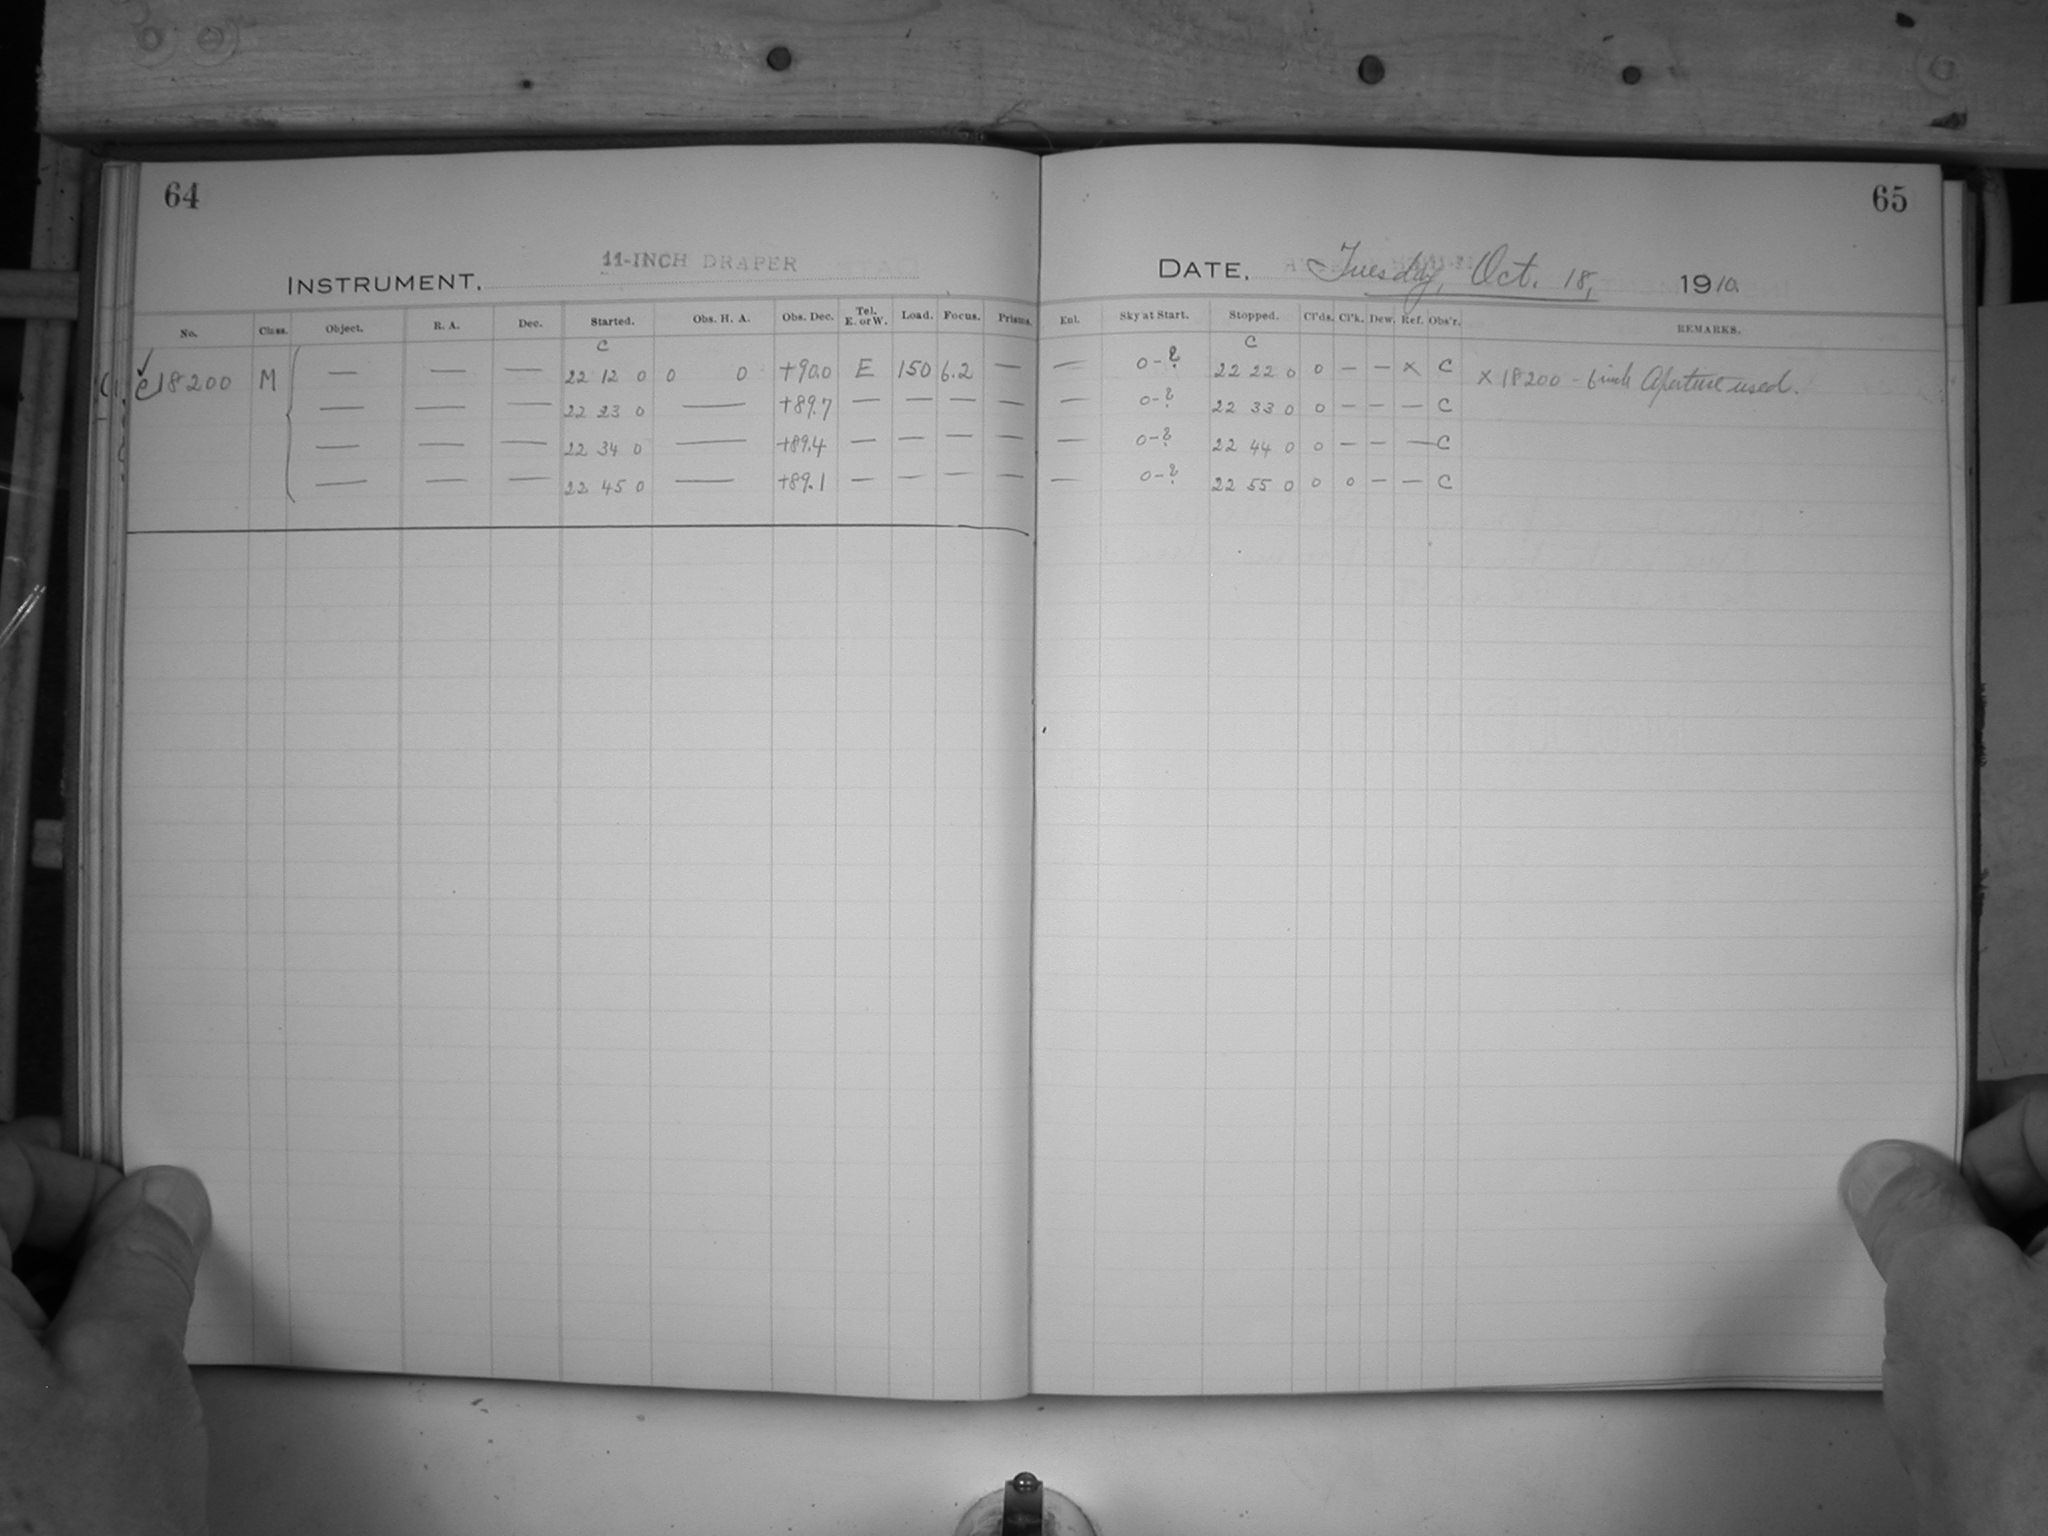 64
INSTRUMENT. 11-INCH DRAPER
No. Class. Object. R. A. Dec. Started. Obs. H. A. Obs. Dec. Tel. E. or W. Load. Focus. Prisms.
C
✓ C18200 M — — — 22 12 0 0 0 +90.0 E 150 6.2 —
— — — 22 23 0 — +89.7 — — — —
— — — 22 34 0 — +89.4 — — — —
— — — 22 45 0 — +89.1 — — — —
65
DATE. Tuesday, Oct. 18, 1910
Enl. Sky at Start. Stopped. Cl'ds. Cl'k. Dew. Ref. Obs'r. REMARKS.
C
— 0-? 22 22 0 0 — — × C × 18200 - 6 inch Aperture used.
— 0-? 22 33 0 0 — — — C
— 0-? 22 44 0 0 — — — C
— 0-? 22 55 0 0 0 — — C